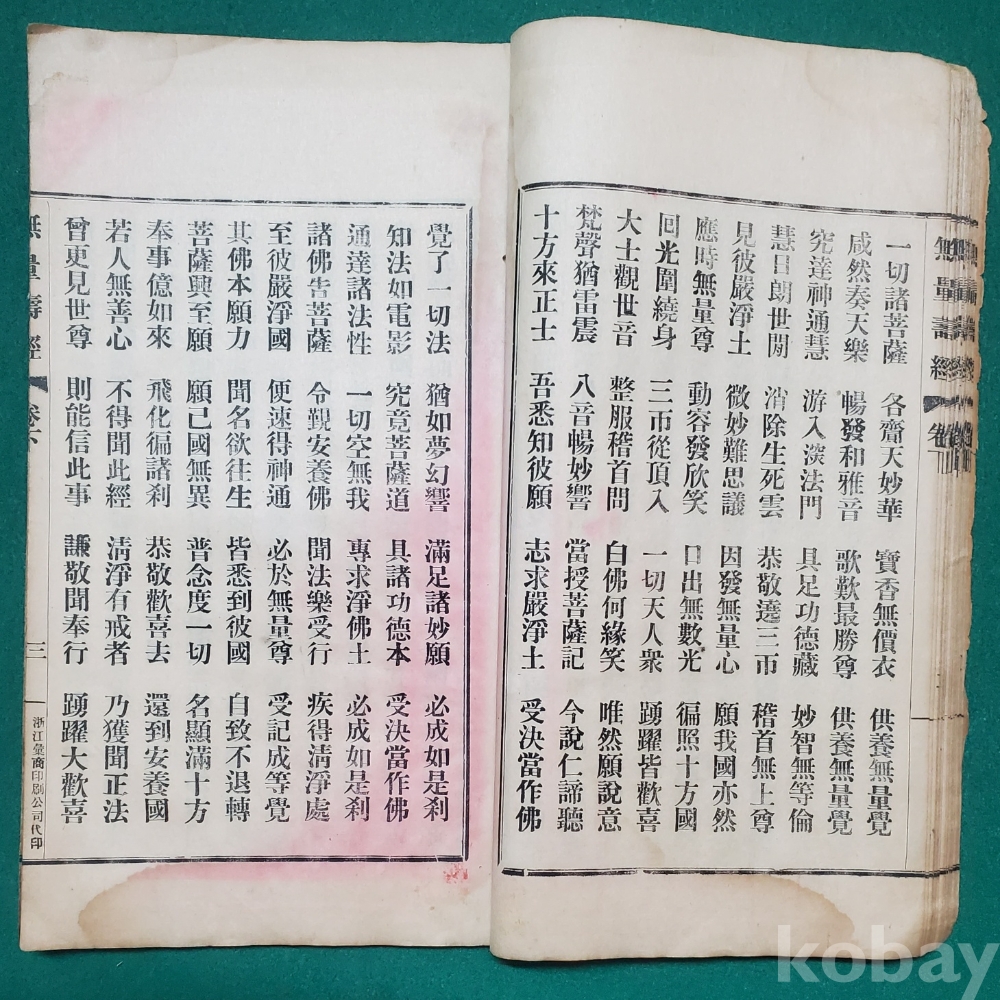 無量壽經 卷下
一切諸菩薩 各齎天妙華 寶香無價衣 供養無量覺
咸然奏天樂 暢發和雅音 歌歎最勝尊 供養無量覺
究達神通慧 游入深法門 具足功德藏 妙智無等倫
慧日朗世閒 消除生死雲 恭敬遶三帀 稽首無上尊
見彼嚴淨土 微妙難思議 因發無量心 願我國亦然
應時無量尊 動容發欣笑 口出無數光 徧照十方國
回光圍繞身 三帀從頂入 一切天人衆 踴躍皆歡喜
大士觀世音 整服稽首問 白佛何緣笑 唯然願說意
梵聲猶雷震 八音暢妙響 當授菩薩記 今說仁諦聽
十方來正士 吾悉知彼願 志求嚴淨土 受決當作佛
覺了一切法 猶如夢幻響 滿足諸妙願 必成如是刹
知法如電影 究竟菩薩道 具諸功德本 受決當作佛
通達諸法性 一切空無我 專求淨佛土 必成如是刹
諸佛告菩薩 令覲安養佛 聞法樂受行 疾得清淨處
至彼嚴淨國 便速得神通 必於無量尊 受記成等覺
其佛本願力 聞名欲往生 皆悉到彼國 自致不退轉
菩薩興至願 願己國無異 普念度一切 名顯滿十方
奉事億如來 飛化徧諸刹 恭敬歡喜去 還到安養國
若人無善心 不得聞此經 清淨有戒者 乃獲聞正法
曾更見世尊 則能信此事 謙敬聞奉行 踴躍大歡喜
無量壽經 卷下 三 浙江彙商印刷公司代印
kobay